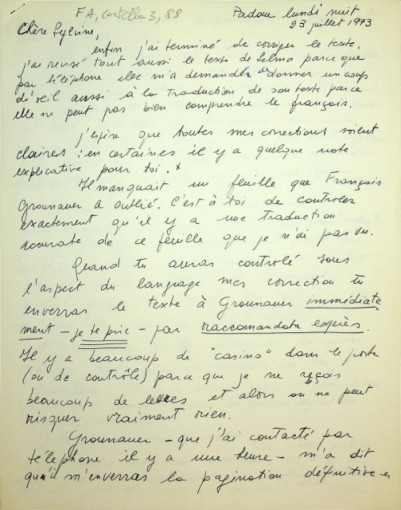 FA, cartella 3, 88
Padoue lundi nuit
23 juillet 1973
Chère Sylvine,
enfin j'ai terminé de corriger le texte.
J'ai revisé tout aussi le texte de Selma parce que
par téléphone elle m'a demandé de donner un coup
d'œil aussi à la traduction de son texte parce
elle ne peut pas bien comprendre le français.
J'espère que toutes mes corrections soient
claires : en certaines il y a quelque note
explicative pour toi. *
Il manquait un feuille que François
Grounauer a oublié. C'est à toi de controler
exactement qu'il y a une traduction
accurate de ce feuille que je n'ai pas vu.
Quand tu auras contrôlé sous
l'aspect du language mes correction tu
enverras le texte à Grounauer immédiate
ment - je te prie - par raccomandata exprès.
Il y a beaucoup de "casino" dans le poste
(ou de contrôle) parce que je ne reçois
beaucoup de lettres et alors on ne peut
risquer vraiment rien.
Grounauer - que j'ai contacté par
téléphone il y a une heure - m'a dit
qu'il m'enverras la pagination définitive e